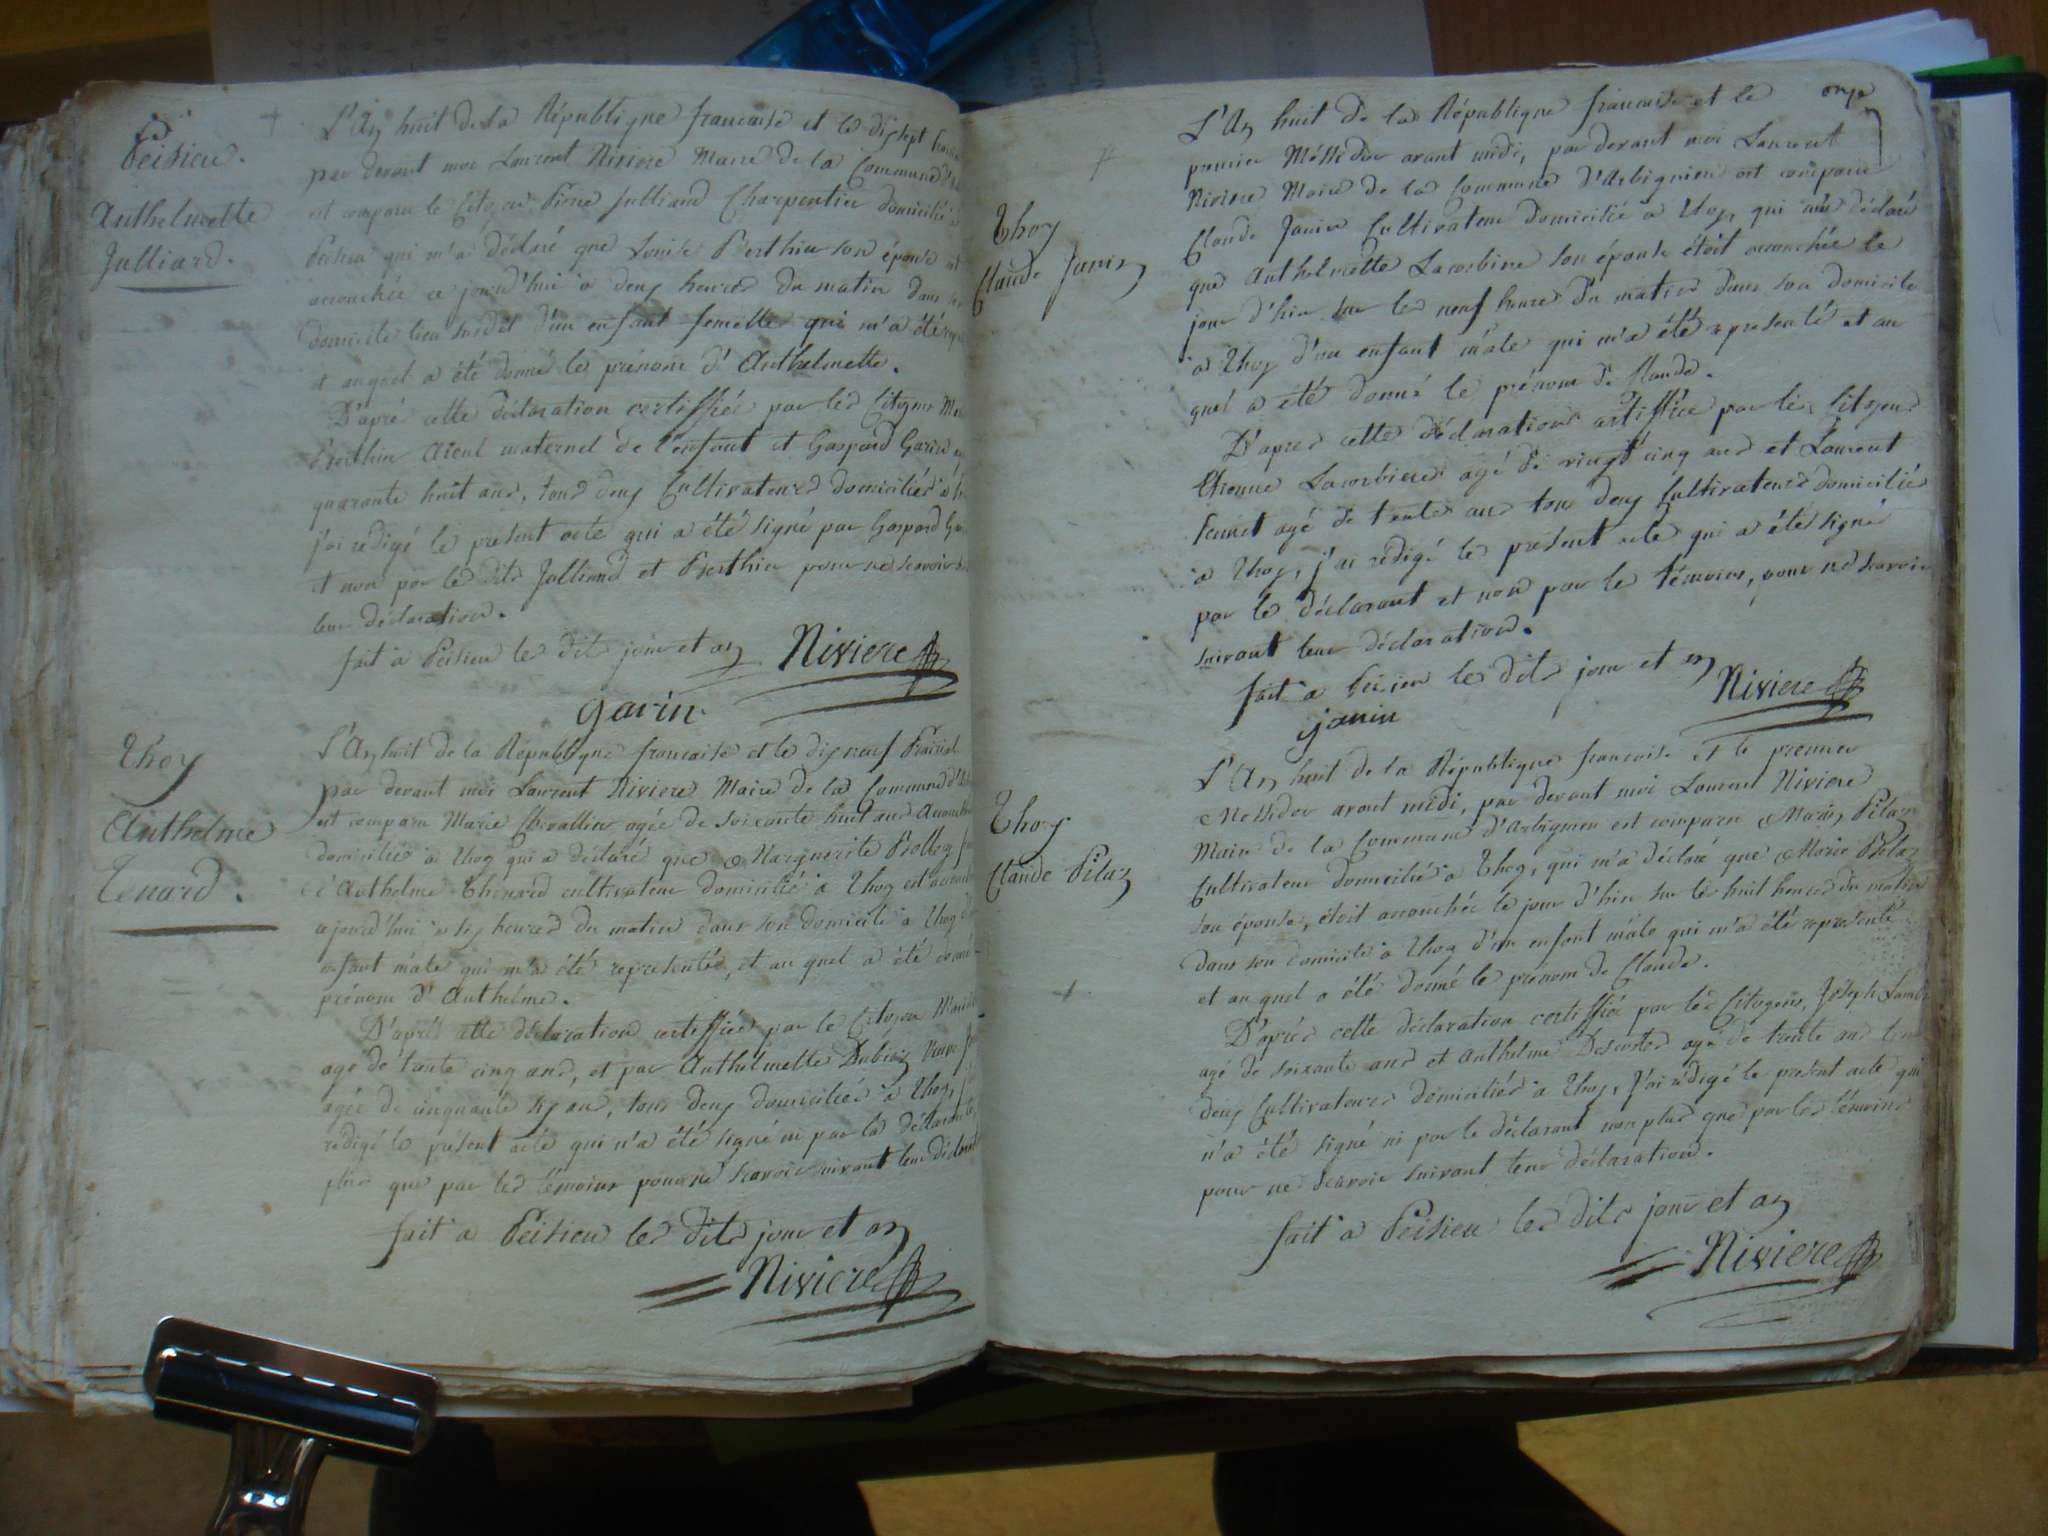 Peisieu.
Anthelmette
Julliard.
L'An huit de la République francaise et le dixsept
par devant moi Laurent Riviere Maire de la Commune
est comparu le Citoyen Pierre Julliand Charpentier domicilié a
Peisieu qui m'a déclaré que Louise Berthier son épouse est
accouchée ce jourd'hui a deux heures du matin dans
domicile lieu susdit d'un enfant femelle qui m'a été
et auquel a été donné le prénom d'Anthelmette.
D'apré cette déclaration certiffiée par les Citoyens
Berthier Aieul maternel de l'enfant et Gaspard Garin
quarante huit ans, tous deux Cultivateurs domiciliés a
j'ai redigé le present acte qui a été signé par Gaspard
et non par les dits Julliand et Berthier pour ne scavoir
leur déclaration.
fait a Peisieu les dits jour et an Riviere
garin
Thoy
Anthelme
Tenard.
L'An huit de la République francaise et le dixneuf Prairial
par devant moi Laurent Riviere Maire de la Commune
est comparu Marie Chevallier agée de soixante huit ans
domiciliée a Thoy qui a déclaré que Marguerite
d'Anthelme Thenard cultivateur domicilié a Thoy est
cejourd'hui a six heures du matin dans son domicile a Thoy
enfant male qui m'a été representée, et au quel a été donné
prénom d'Anthelme.
D'aprés cette déclaration certiffiée par le Citoyen
agé de trente cinq ans, et par Anthelmette Dubiez Veuve
agée de cinquante six ans, tous deux domiciliés a Thoy,
rédigé le présent acte qui n'a été signé ni par la déclarante
plus que par les témoins pour ne scavoir suivant leur
fait a Peisieu les dits jour et an
Riviere
onze
L'An huit de la République francaise et le
premier Messidor avant midi, par devant moi Laurent
Riviere Maire de la Commune d'Arbignieu est comparu
Claude Janin Cultivateur domicilié a Thoy, qui m'a déclaré
que Anthelmette Lacorbiere son épouse étoit accouchée le
jour d'hier sur les neuf heures du matin dans son domicile
a Thoy d'un enfant mâle qui m'a été representé et au
quel a été donné le prénom de Claude.
Thoy
Claude Janin
D'apres cette déclaration certiffiée par les Citoyens
Etienne Lacorbiere agé de vingt cinq ans et Laurent
agé de trente ans tous deux Cultivateurs domiciliés
a Thoy, j'ai rédigé le présent acte qui a été signé
par le déclarant et non par les témoins, pour ne scavoir
suivant leur déclaration.
fait a Peisieu les dits jour et an Riviere
janin
Thoy
Claude Pilaz
L'An huit de la République francaise et le premier
Messidor avant midi, par devant moi Laurent Riviere
Maire de la Commune d'Arbignieu est comparu Pilaz
Cultivateur domicilié a Thoy, qui m'a déclaré que Marie
son épouse, étoit accouchée le jour d'hier sur les huit heures du matin
dans son domicile a Thoy d'un enfant mâle qui m'a été representé
et au quel a été donné le prénom de Claude.
D'aprés cette déclaration certiffiée par les Citoyens, Joseph
agé de soixante ans et Anthelme Descotes agé de trente ans
deux Cultivateurs domiciliés a Thoy, J'ai rédigé le présent acte qui
n'a été signé ni par le déclarant non plus que par les témoins
pour ne scavoir suivant leur déclaration.
fait a Peisieu les dits jour et an
Riviere